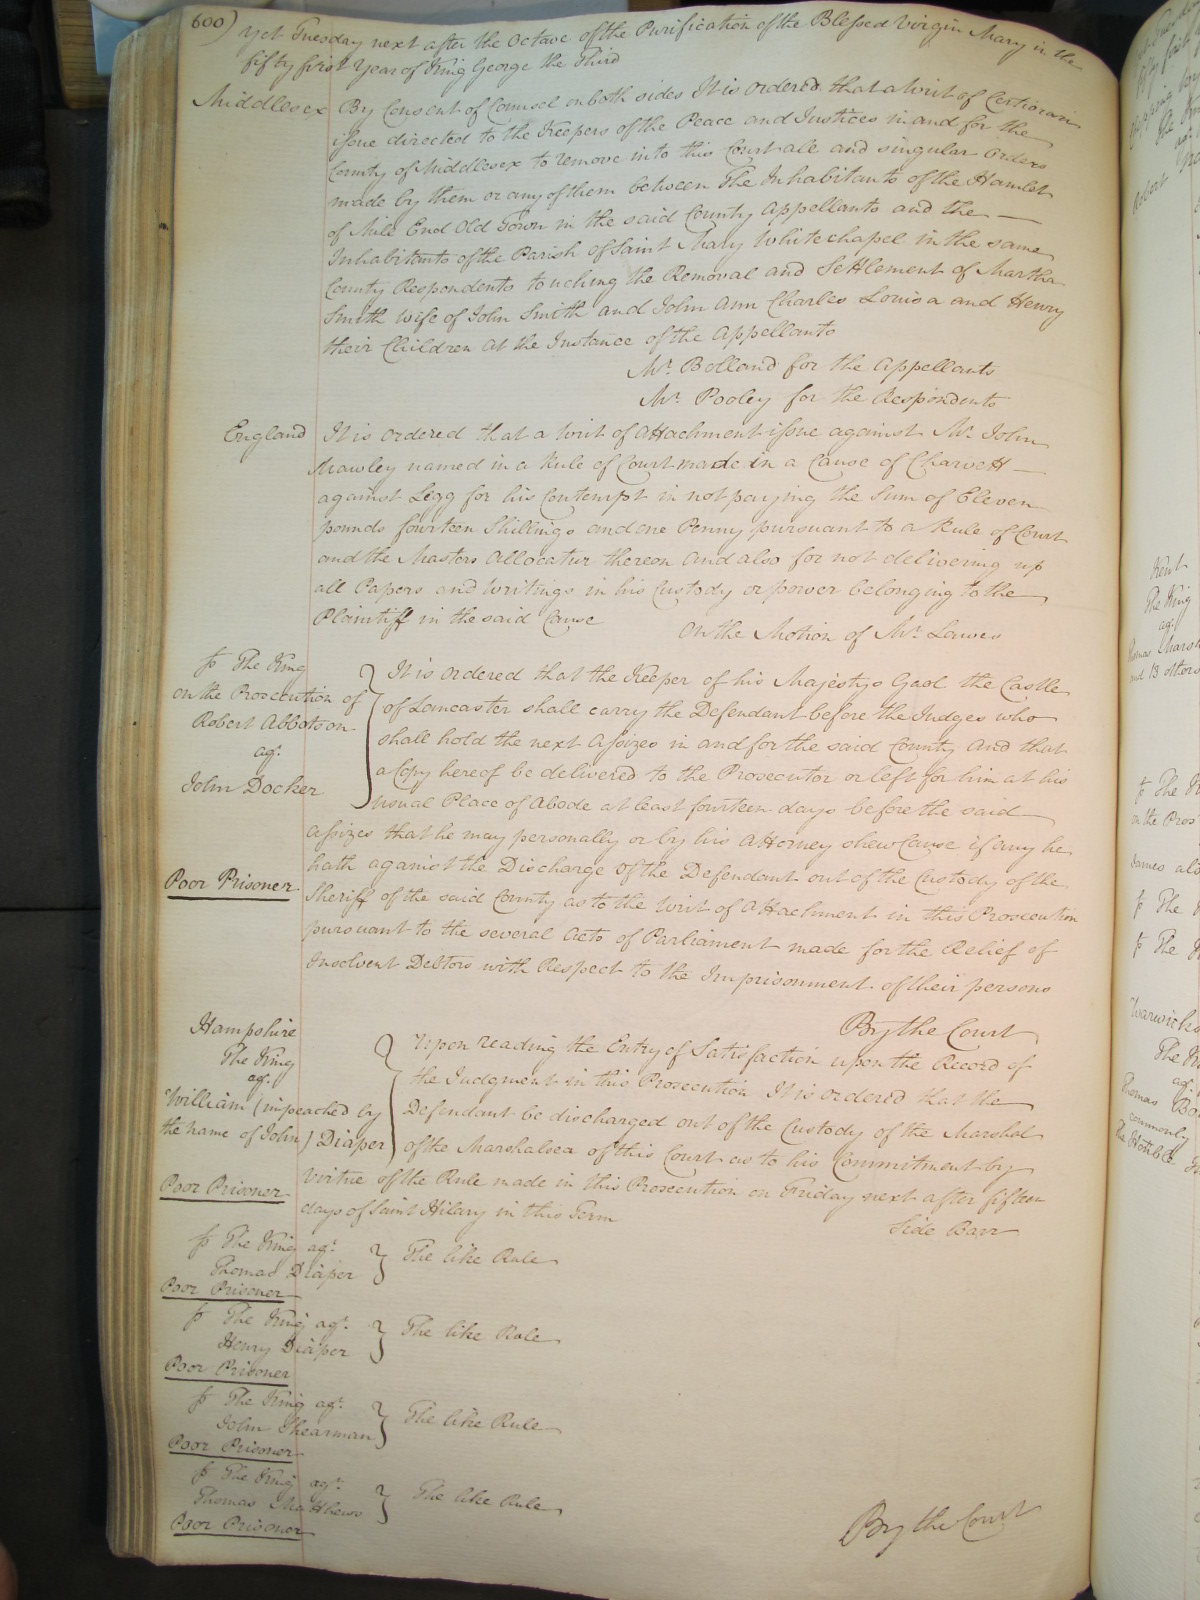 600)
Yet Tuesday next after the Octave of the Purification of the Blessed Virgin Mary in the
fifty first Year of King George the Third
Middlesex By Consent of Counsel on both sides It is ordered that a Writ of Certiorari
issue directed to the Keepers of the Peace and Justices in and for the
County of Middlesex to remove into this Court all and singular Orders
made by them or any of them between The Inhabitants of the Hamlet
of Mile End Old Town in the said County Appellants and the
Inhabitants of the Parish of Saint Mary Whitechapel in the same
County Respondents touching the Removal and Settlement of Martha
Smith Wife of John Smith and John Ann Charles Louisa and Henry
their Children at the Instance of the Appellants
Mr. Bolland for the Appellants
Mr. Pooley for the Respondents
England It is ordered that a Writ of Attachment issue against Mr. John
Mawley named in a Rule of Court made in a Cause of Charvett
against Legg for his Contempt in not paying the Sum of Eleven
pounds fourteen Shillings and one Penny pursuant to a Rule of Court
and the Masters Allocatur thereon and also for not delivering up
all Papers and Writings in his Custody or power belonging to the
Plaintiff in the said Cause
On the Motion of Mr. Lawes
The King
on the Prosecution of
Robert Abbotson
agt.
John Docker
Poor Prisoner
It is ordered that the Keeper of his Majestys Gaol the Castle
of Lancaster shall carry the Defendant before the Judges who
shall hold the next Assizes in and for the said County and that
a Copy hereof be delivered to the Prosecutor or left for him at his
usual Place of Abode at least fourteen days before the said
Assizes that he may personally or by his Attorney shew Cause if any he
hath against the Discharge of the Defendant out of the Custody of the
Sheriff of the said County as to the Writ of Attachment in this Prosecution
pursuant to the several Acts of Parliament made for the Relief of
Insolvent Debtors with Respect to the Imprisonment of their persons
By the Court
Hampshire
The King
agt.
William (impeached by
the name of John) Diaper
Poor Prisoner
Upon reading the Entry of Satisfaction upon the Record of
the Judgment in this Prosecution It is ordered that the
Defendant be discharged out of the Custody of the Marshal
of the Marshalsea of this Court as to his Commitment by
virtue of the Rule made in this Prosecution on Friday next after fifteen
days of Saint Hilary in this Term
Side Barr
The King agt.
Thomas Diaper
The like Rule
Poor Prisoner
The King agt.
Henry Diaper
The like Rule
Poor Prisoner
The King agt.
John Shearman
The like Rule
Poor Prisoner
The King agt.
Thomas Matthews
The like Rule
Poor Prisoner
By the Court
Robert
Kent
The King
agt.
and 13 others
The
on the Pros
James
The
The
Warwicks
The
agt.
Thomas
commonly